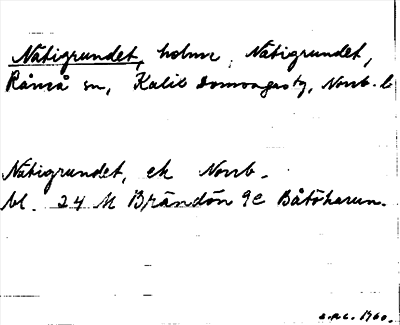 Natigrundet, holme, Natigrundet,
Råneå sn, Kalix domsagas tg, Norrb. l
Natigrundet, ek Norrb.
bl. 24 M Brändön 9e Båtöharun.
1960.